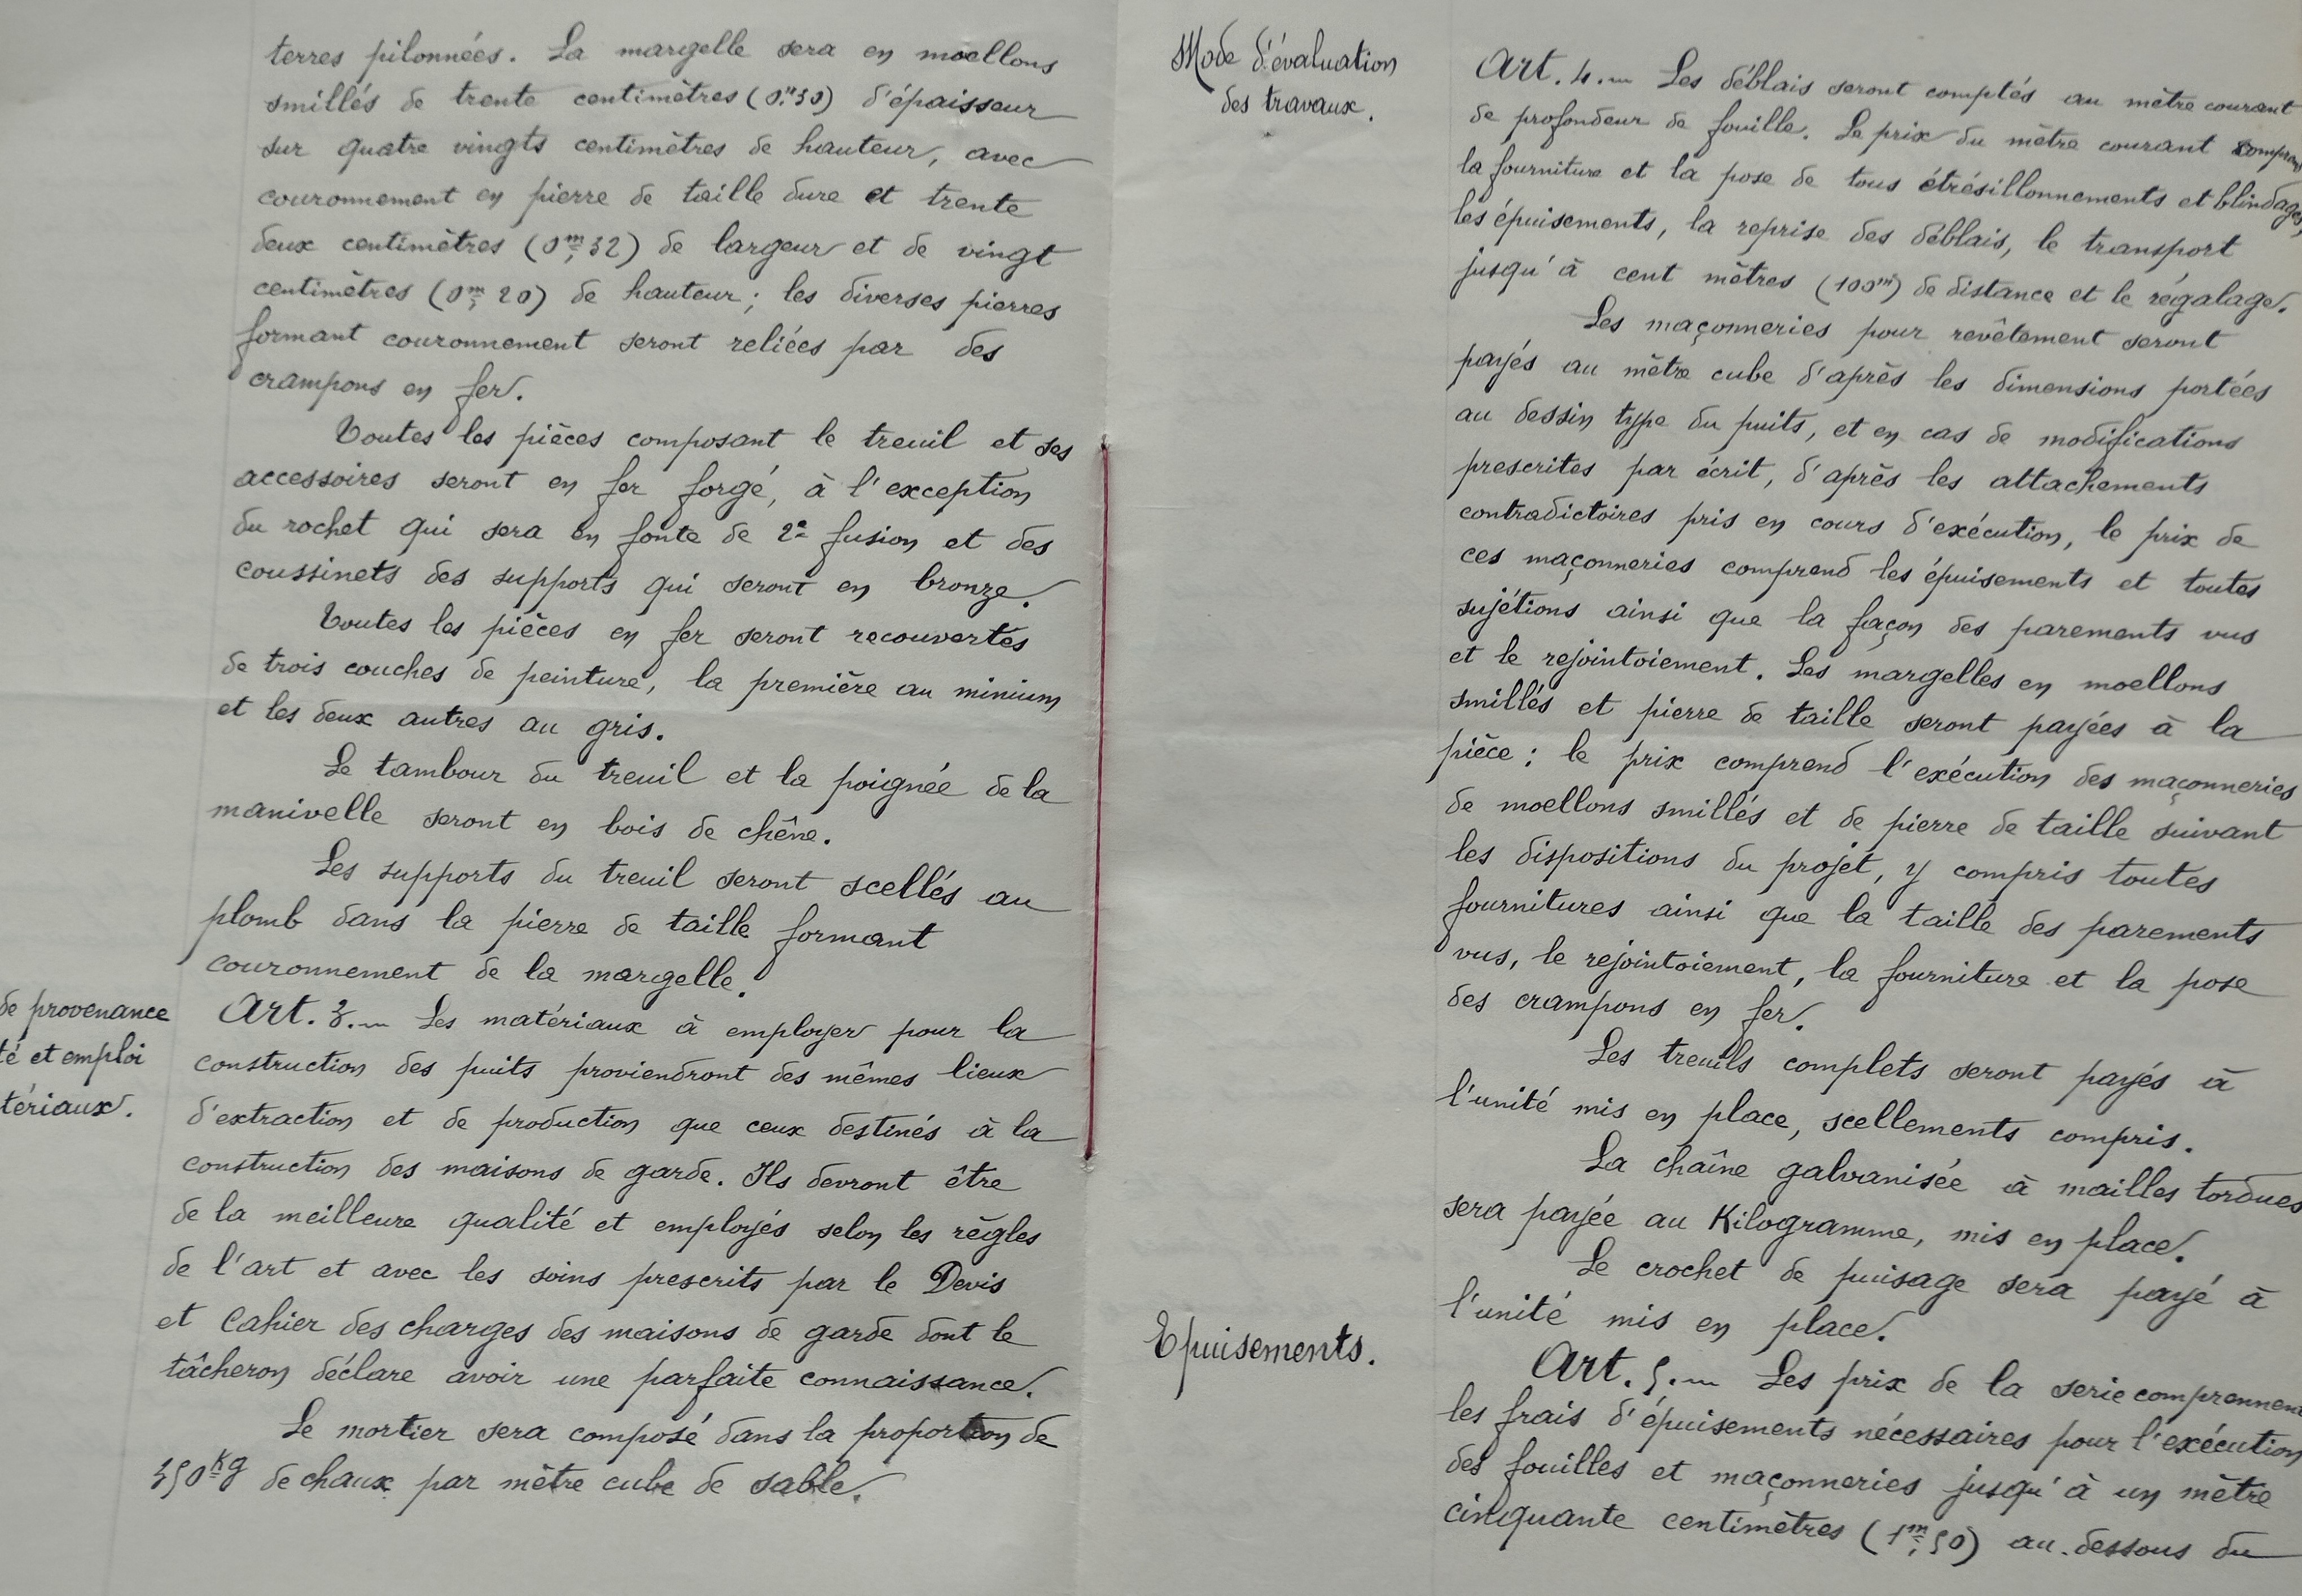 terres pilonnées. La margelle sera en moellons
smillés de trente centimètres (0,m30) d'épaisseur
sur quatre vingts centimètres de hauteur, avec
couronnement en pierre de taille dure et trente
deux centimètres (0m,32) de largeur et de vingt
centimètres (0m,20) de hauteur ; les diverses pierres
formant couronnement seront reliées par des
crampons en fer.
Toutes les pièces composant le treuil et ses
accessoires seront en fer forgé, à l'exception
du rochet qui sera en fonte de 2e fusion et des
coussinets des supports qui seront en bronze.
Toutes les pièces en fer seront recouvertes
de trois couches de peinture, la première au minium
et les deux autres au gris.
Le tambour du treuil et la poignée de la
manivelle seront en bois de chêne.
Les supports du treuil seront scellés au
plomb dans la pierre de taille formant
couronnement de la margelle.
de provenance
té et emploi
tériaux.
Art. 3. — Les matériaux à employer pour la
construction des puits proviendront des mêmes lieux
d'extraction et de production que ceux destinés à la
construction des maisons de garde. Ils devront être
de la meilleure qualité et employés selon les règles
de l'art et avec les soins prescrits par le Devis
et Cahier des charges des maisons de garde dont le
tâcheron déclare avoir une parfaite connaissance.
Le mortier sera composé dans la proportion de
350kg de chaux par mètre cube de sable.
Mode d'évaluation
des travaux.
Art. 4. — Les déblais seront comptés au mètre courant
de profondeur de fouille. Le prix du mètre courant
la fourniture et la pose de tous étrésillonnements et blindages,
les épuisements, la reprise des déblais, le transport
jusqu'à cent mètres (100m) de distance et le régalage.
Les maçonneries pour revêtement seront
payés au mètre cube d'après les dimensions portées
au dessin type du puits, et en cas de modifications
prescrites par écrit, d'après les attachements
contradictoires pris en cours d'exécution, le prix de
ces maçonneries comprend les épuisements et toutes
sujétions ainsi que la façon des parements vus
et le rejointoiement. Les margelles en moellons
smillés et pierre de taille seront payées à la
pièce : le prix comprend l'exécution des maçonneries
de moellons smillés et de pierre de taille suivant
les dispositions du projet, y compris toutes
fournitures ainsi que la taille des parements
vus, le rejointoiement, la fourniture et la pose
des crampons en fer.
Les treuils complets seront payés à
l'unité mis en place, scellements compris.
La chaîne galvanisée à mailles tordues
sera payée au Kilogramme, mis en place.
Le crochet de puisage sera payé à
l'unité mis en place.
Epuisements.
Art. 5. — Les prix de la serie comprennen
les frais d'épuisements nécessaires pour l'exécution
des fouilles et maçonneries jusqu'à un mètre
cinquante centimètres (1m,50) au-dessous du